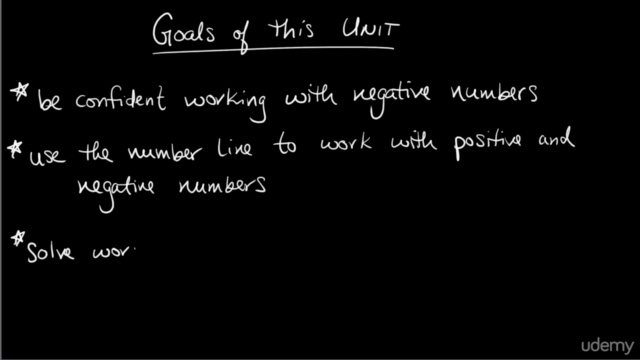 Goals of this Unit
* be confident working with negative numbers
* use the number line to work with positive and
negative numbers
* Solve wor
udemy